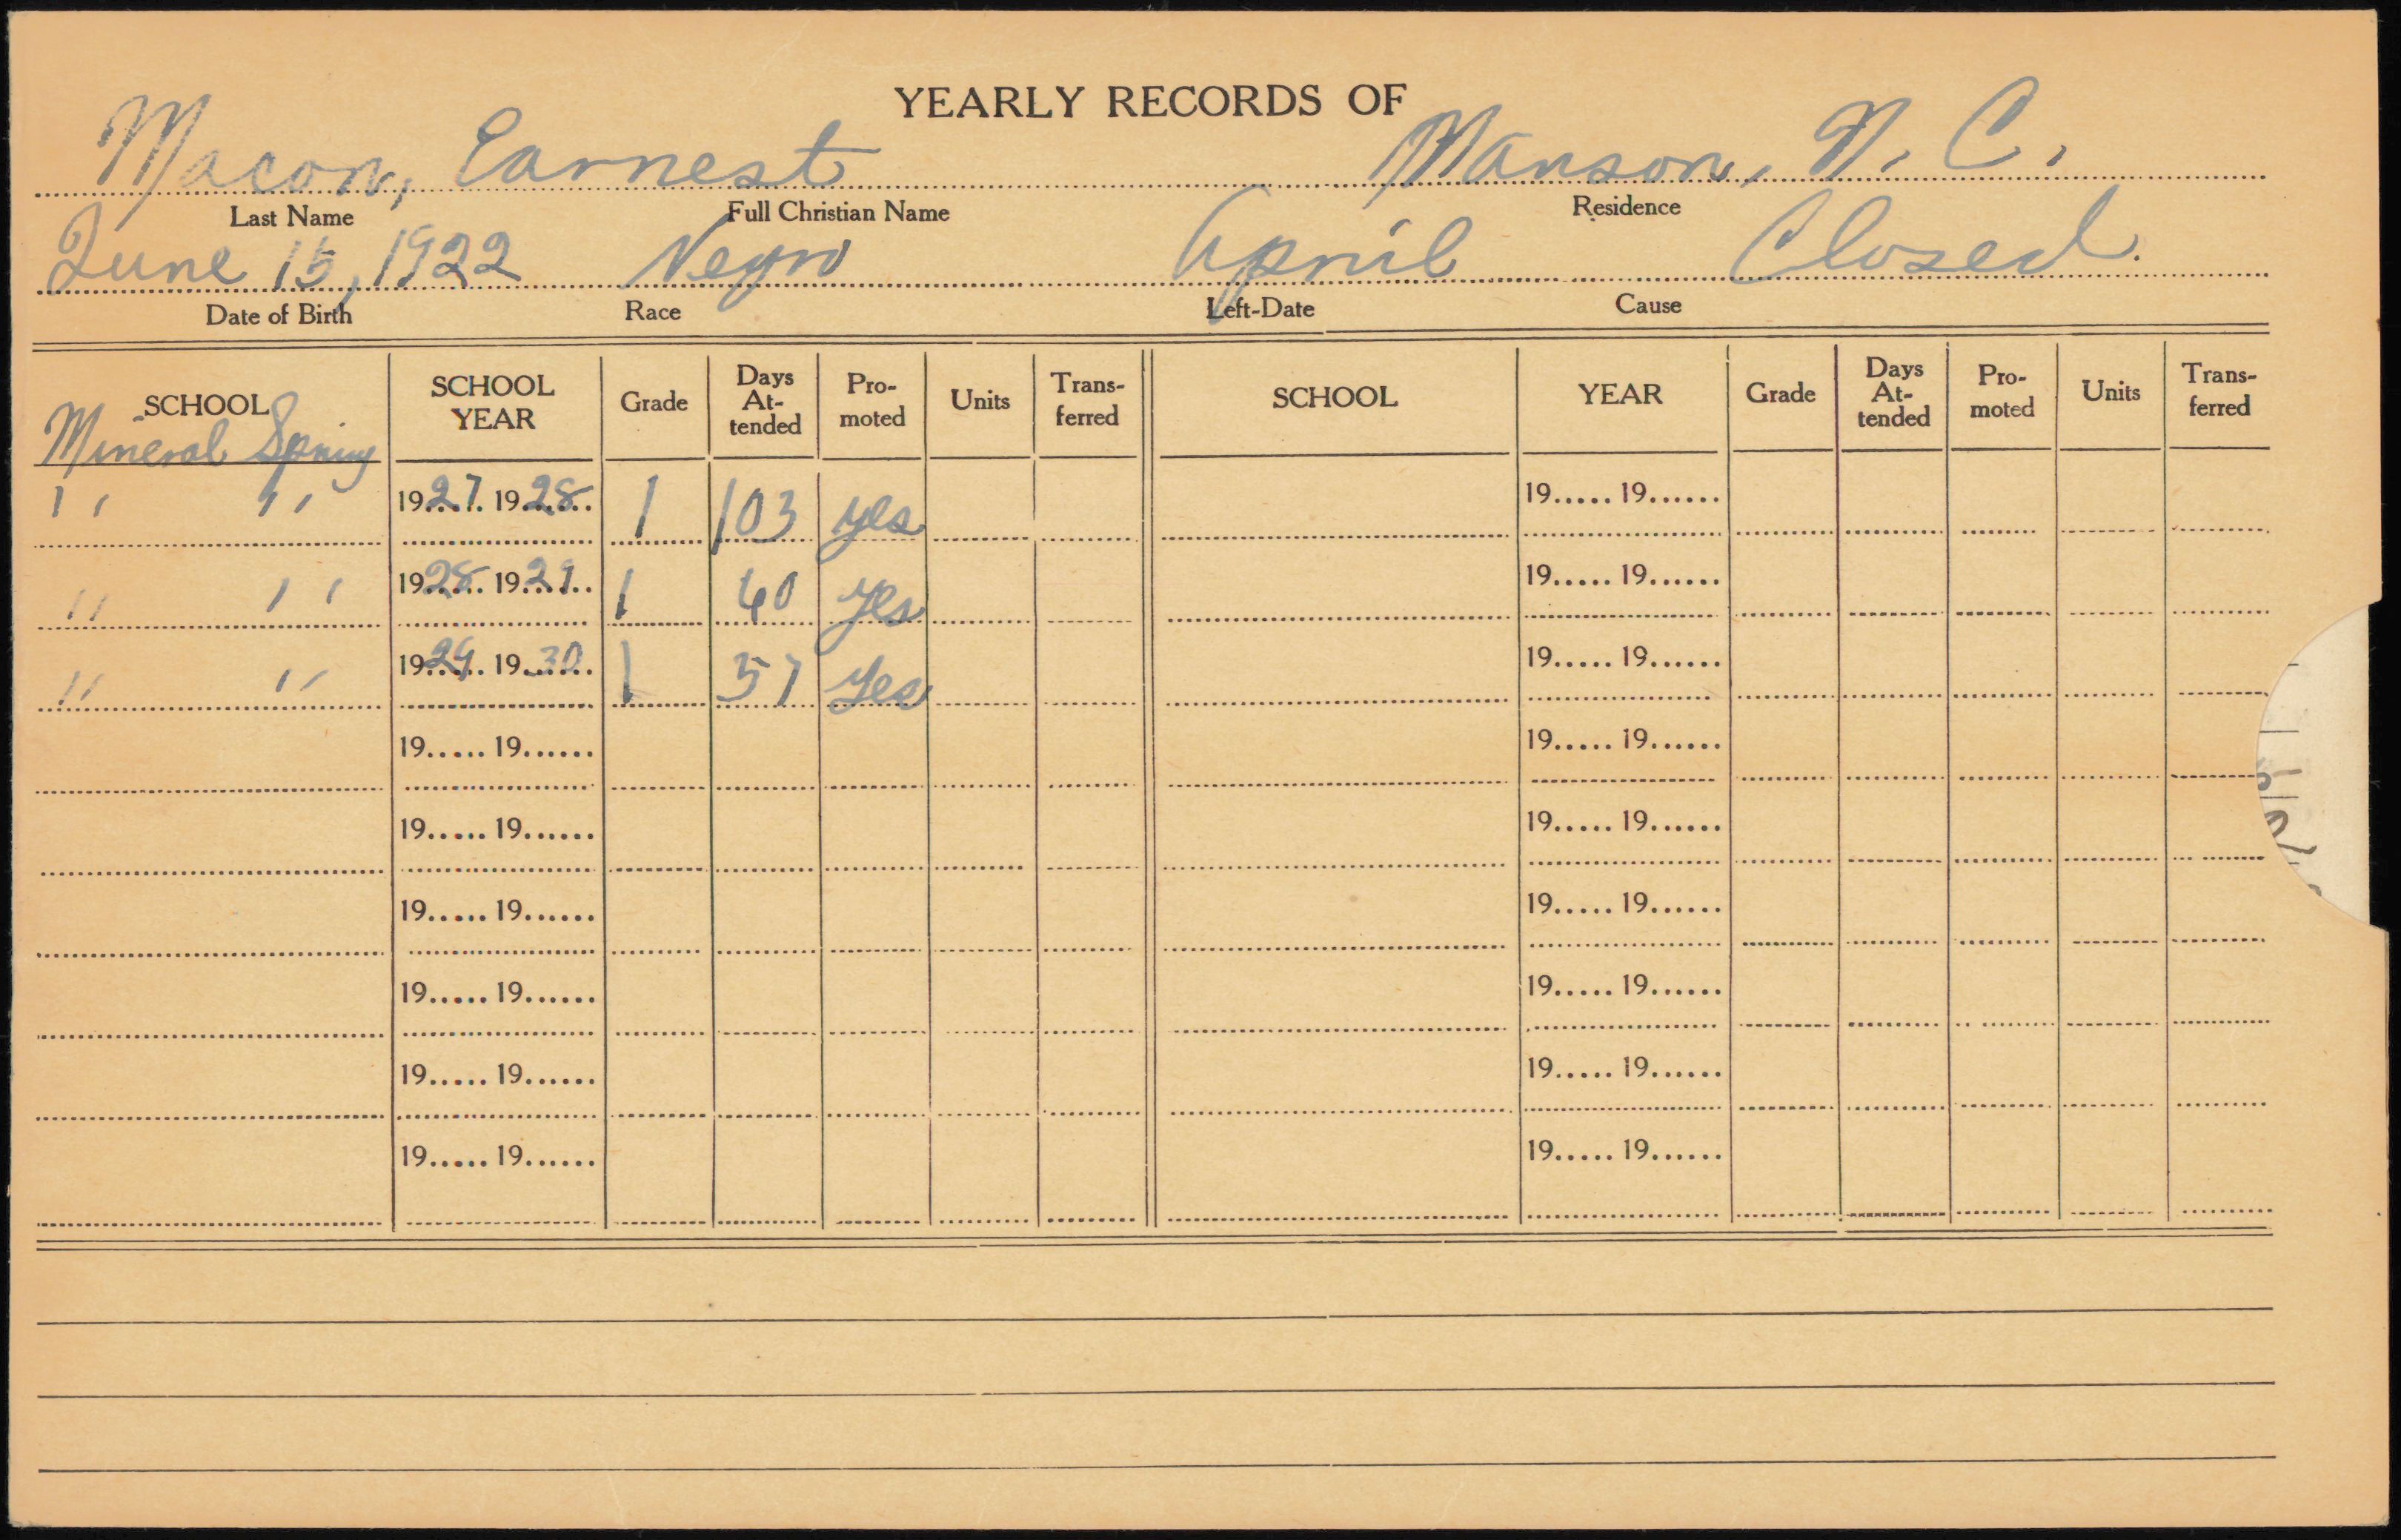 YEARLY RECORDS OF
Macon, Earnest Manson, N. C.
Last Name Full Christian Name Residence
June 15, 1922 Negro April Closed.
Date of Birth Race Left-Date Cause
SCHOOL SCHOOL YEAR Grade Days At-tended Pro-moted Units Trans-ferred SCHOOL YEAR Grade Days At-tended Pro-moted Units Trans-ferred
Mineral Spring
" " 1927 1928 1 103 yes 19..... 19......
" " 1928 1929 1 40 yes 19..... 19......
" " 1929 1930 1 57 yes 19..... 19......
19..... 19...... 19..... 19......
19..... 19...... 19..... 19......
19..... 19...... 19..... 19......
19..... 19...... 19..... 19......
19..... 19...... 19..... 19......
19..... 19...... 19..... 19......